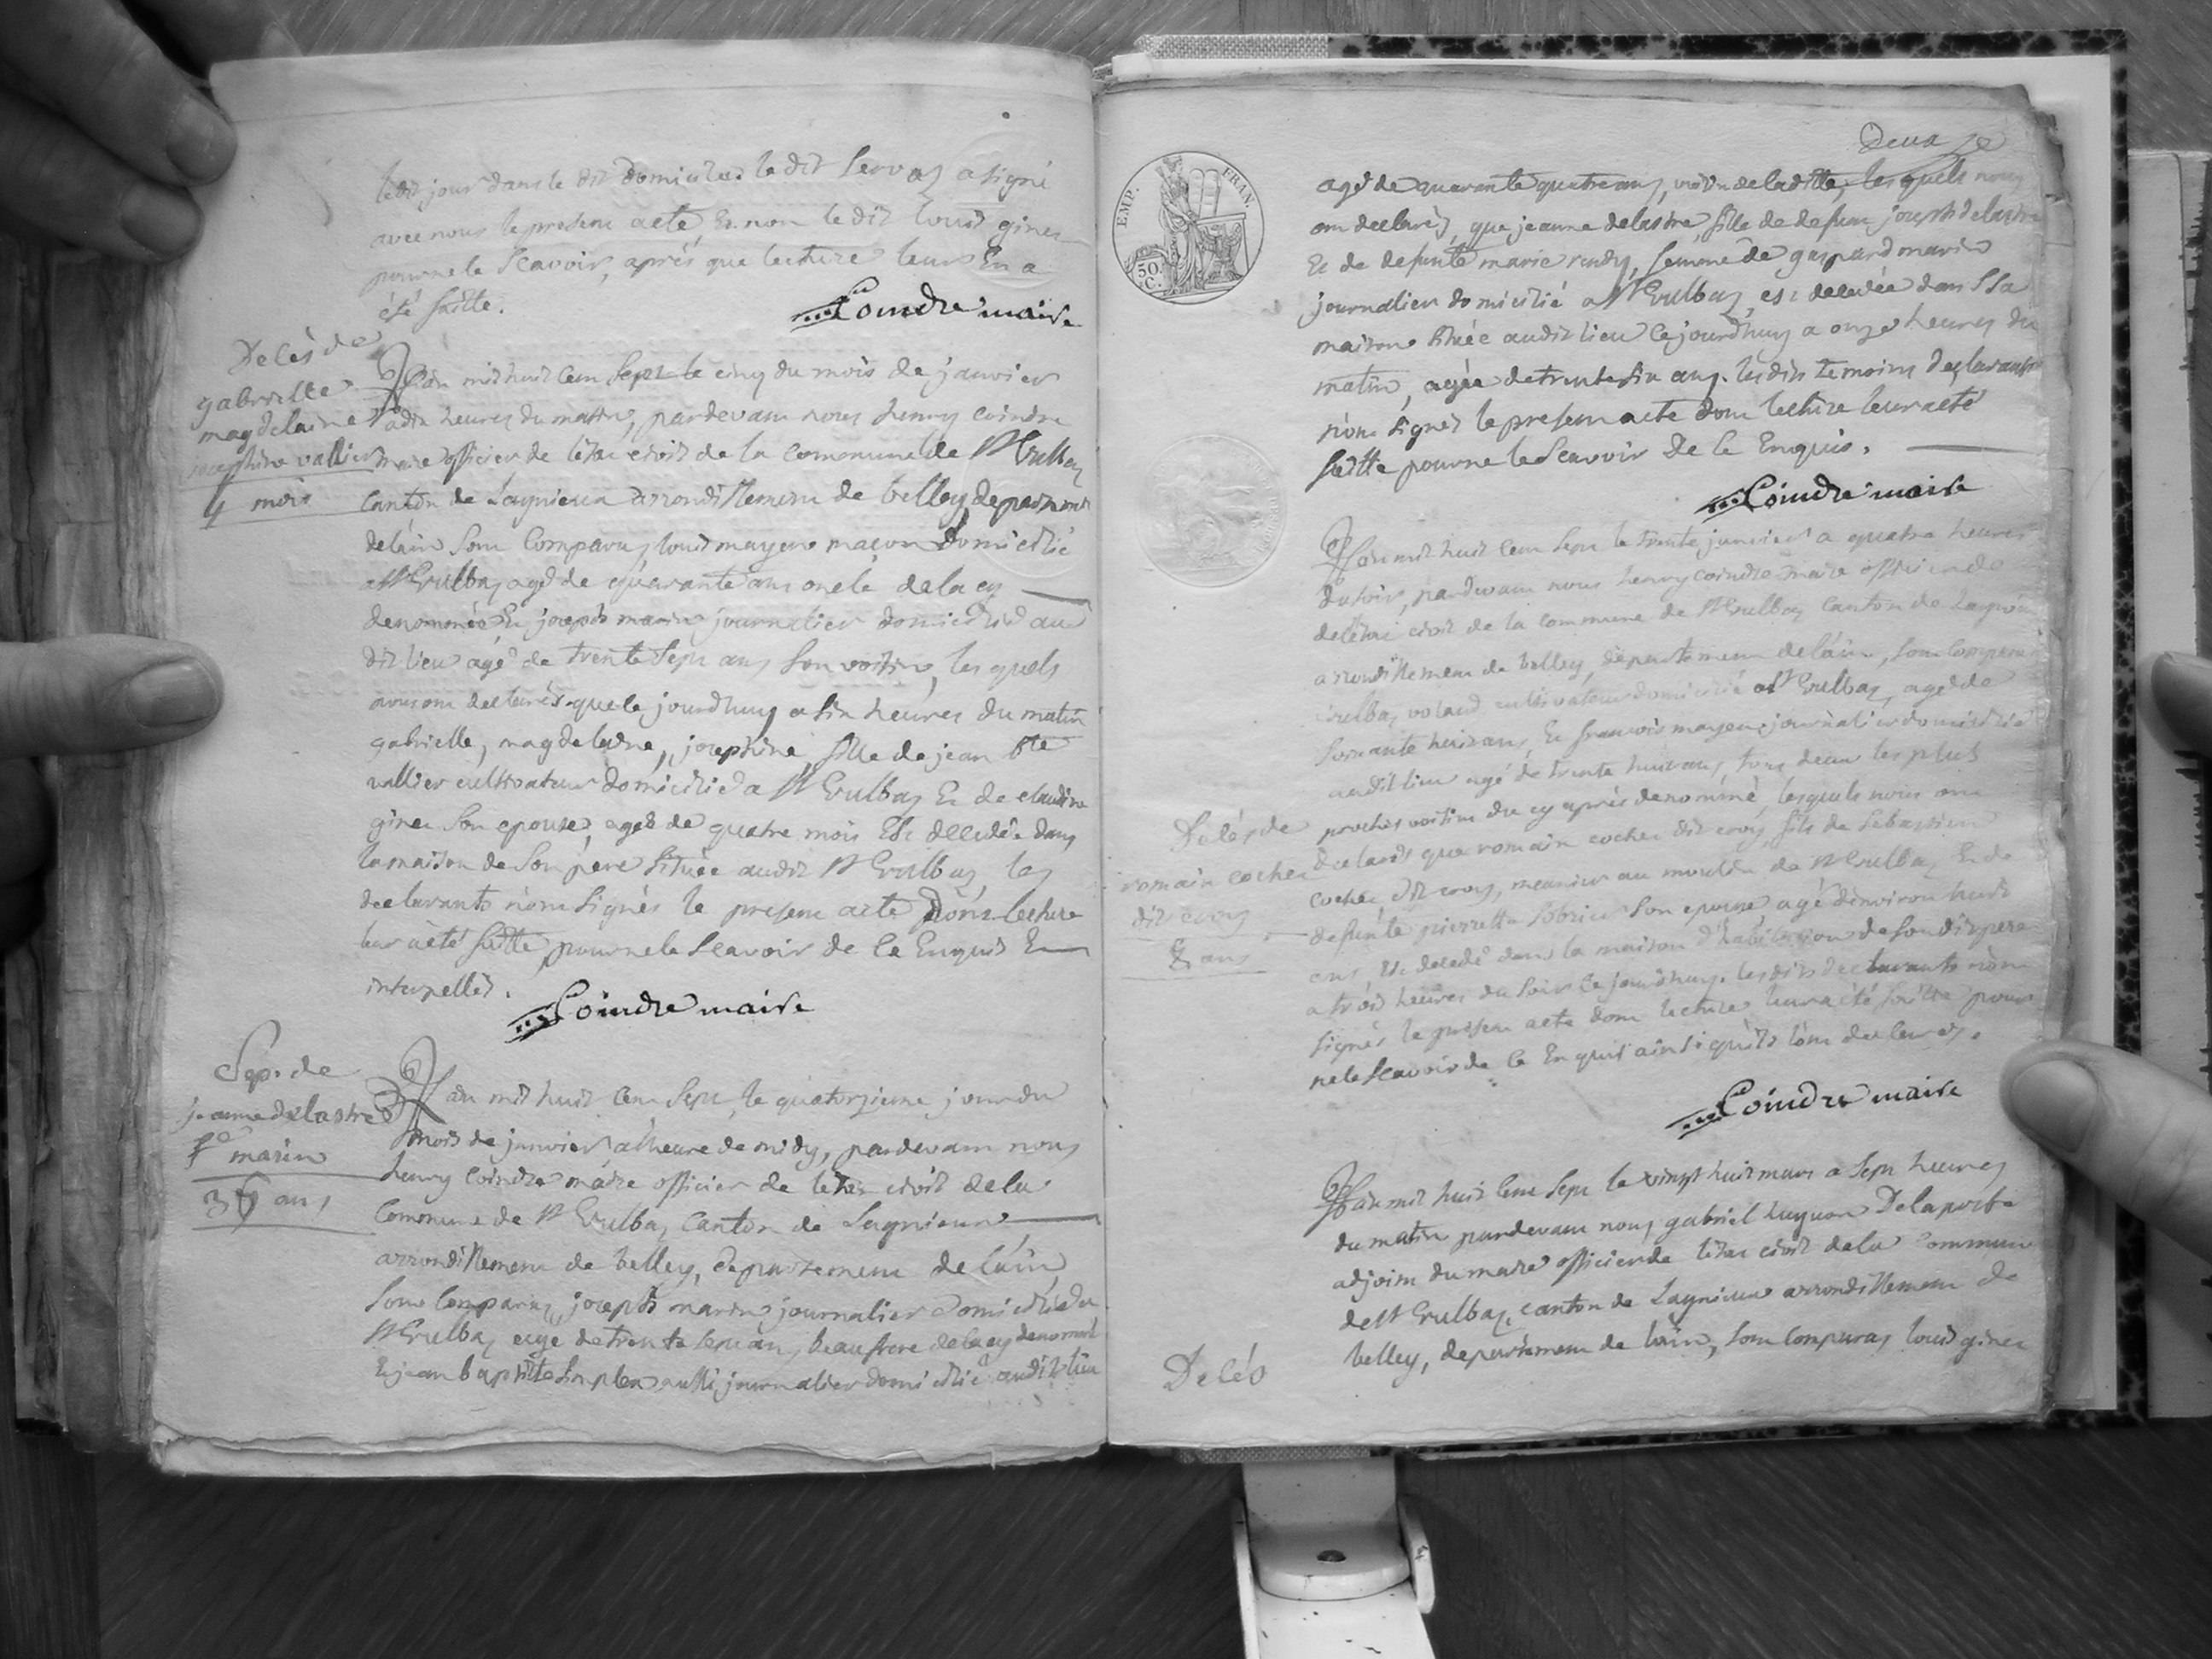 ledit jour dans le dit domicile. le dit Servaz a signé
avec nous le present acte Et non le dit louis ginet
pour ne le Scavoir, après que lecture leur En a
été faitte.
Coindre maire
Décès de
gabrielle
magdelaine
josephine vallier
4 mois
L'an mil huit Cent Sept le cinq du mois de janvier
a dix heures du matin, pardevant nous henry coindre
maire officier de l'état civil de la commune de St Vulbaz
canton de Lagnieux arrondissement de belley departement
de lain Sont Comparus louis mayeux maçon Domicilié
a St Vulbaz agé de quarante ans oncle de la cy
denommée Et joseph marin journalier domicilié au
dit lieu agé de trente Sept ans Son voisin, les quels
nous ont declarés que le jourdhuy a six heures du matin
gabrielle, magdelaine, josephine, fille de jean Bte
vallier cultivateur domicilié a St Vulbaz Et de claudine
ginet Son epouse, ageé de quatre mois Est decedée dans
la maison de Son pere Située audit St Vulbaz, les
declarants n'ont Signés le present acte Dont lecture
leur a été faitte pour ne le Scavoir de ce Enquis Et
interpellés.
Coindre maire
Sep. de
jeanne delastre
fe marin
36 ans
L'an mil huit Cent Sept, le quatorzieme jour du
mois de janvier a l'heure de midy, pardevant nous
henry Coindre maire officier de l'état civil de la
Commune de St Vulbaz Canton de Lagnieux
arrondissement de belley, departement de l'ain,
Sont Comparus, joseph marin journalier domicilié du
St Vulbaz agé de trente Sept ans, beaufrere de la cy denommé
Et jean baptiste aussi journalier domicilié audit lieu
Deux
EMP. FRAN.
50 C.
agé de quarante quatre ans, voisin de laditte, les quels nous
ont declarés, que jeanne delastre, fille de defunt joseph delastre
Et de defunte marie, femme de gaspard marin
journalier domicilié a St Vulbaz, est decedée dans Sa
maison Située audit lieu Cejourdhuy a onze heures du
matin, agée de trente six ans. lesdits temoins declarants
n'ont Signés le present acte dont lecture leur a été
faitte pour ne le Scavoir de Ce Enquis.
Coindre maire
L'an mil huit Cent Sept le trente janvier a quatre heures
du soir, pardevant nous henry coindre maire officier de
de l'état civil de la commune de St Vulbaz Canton de Lagnieux
arrondissement de belley, departement de lain, Sont Comparus
Vulbaz volaud cultivateur domicilié a St Vulbaz, agé de
Soixante huit ans, Et francois mayeux journalier domicilié
audit lieu agé de trente huit ans, tous deux les plus
proches voisins du cy après denommé, lesquels nous ont
declarés que romain cochet dit croz, fils de Sebastien
cochet dit croz, meunier au moulin de St Vulbaz Et de
defunte pierrette Son epouse agé d'environ huit
ans, Est decedé dans la maison d'habitation de Son dit pere
a trois heures du Soir Ce jourdhuy. les dits declarants n'ont
Signés le present acte dont lecture leur a été faitte pour
ne le Scavoir de Ce Enquis ainsi qu'ils l'ont declarés.
Coindre maire
Décès de
romain cochet
dit croz
8 ans
L'an mil huit Cent Sept le vingt huit mars a Sept heures
du matin pardevant nous gabriel huguon Delaporte
adjoint du maire officier de l'état civil dela commune
de St Vulbaz, canton de Lagnieux arrondissement de
belley, departement de lain, Sont Comparus louis ginet
Décès